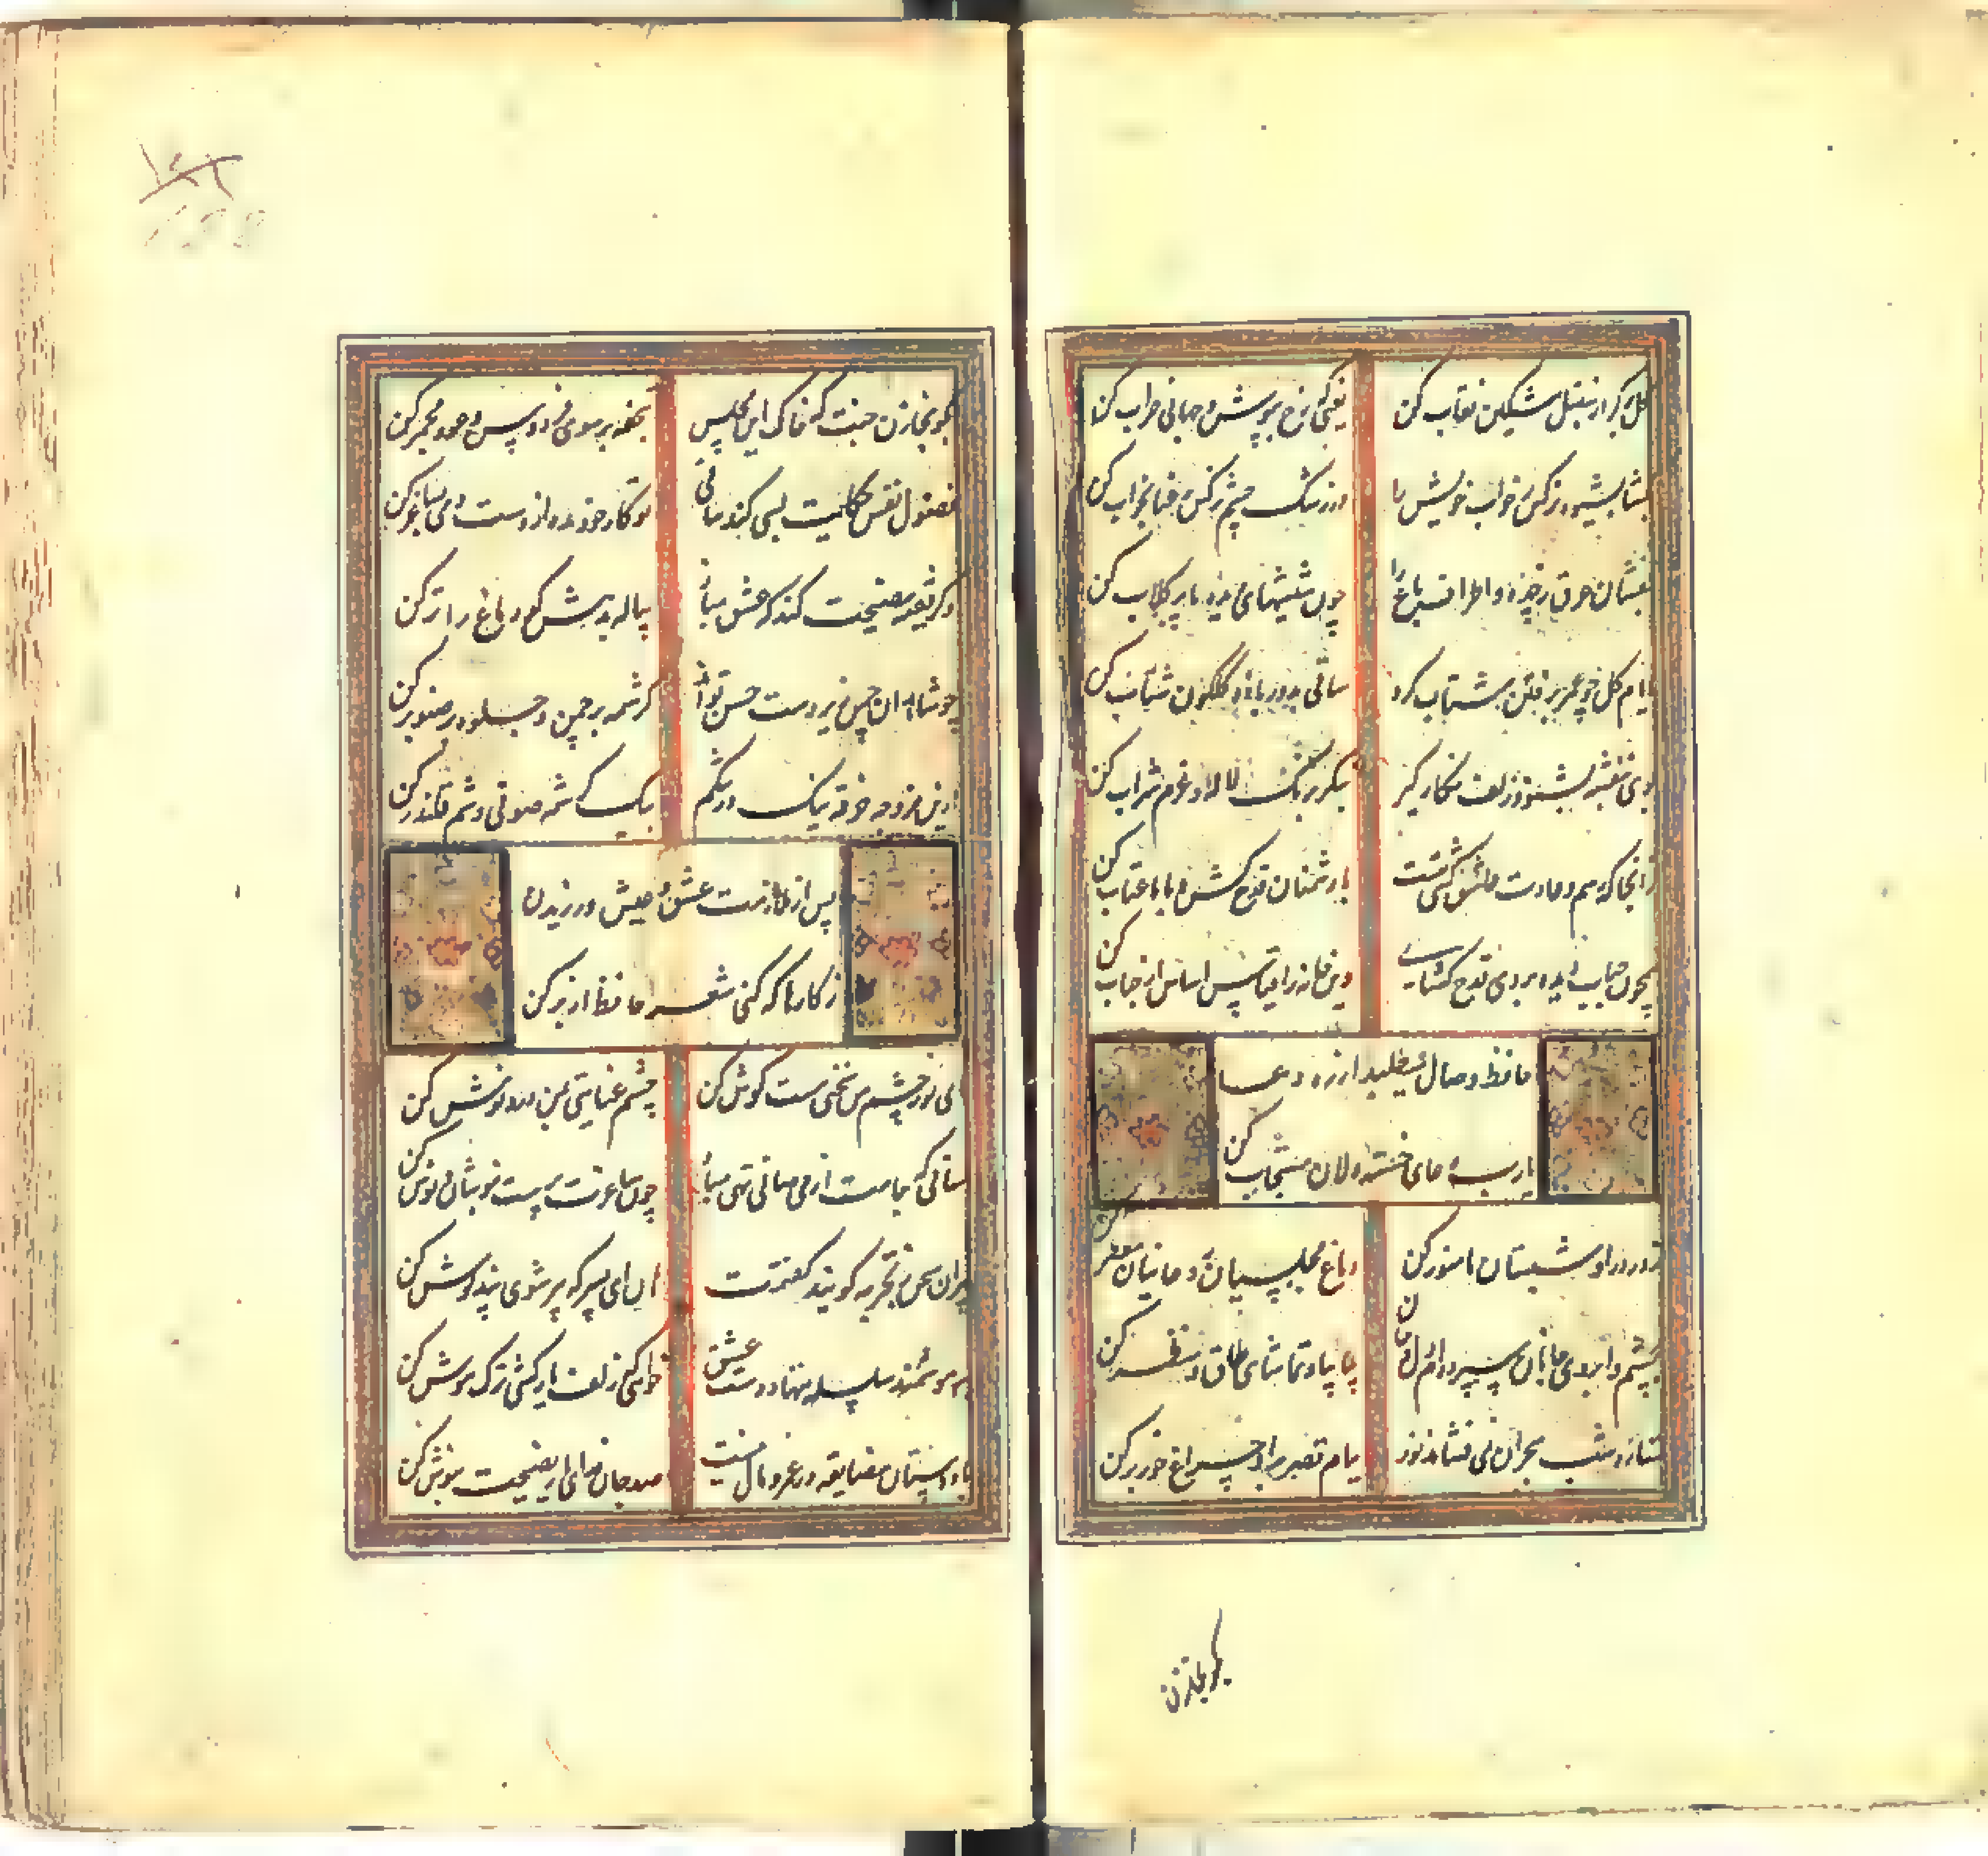 گل را گر از سنبل مشکین نقاب کن یعنی که رخ بپوش و جهانی خراب کن
بگشا بشیوه نرگس خواب خویش را وز رشک چشم نرگس رعنا بخواب کن
بفشان عرق ز چهره و اطراف باغ را چون شیشهای دیده ما پر گلاب کن
ایام گل چو عمر برفتن شتاب کرد ساقی بدور باده گلگون شتاب کن
بوی بنفشه بشنو و زلف نگار گیر بنگر برنگ لاله و عزم شراب کن
زانجا که رسم و عادت عاشق کشی تست با دشمنان قدح کش و با ما عتاب کن
همچون حباب دیده بروی قدح گشای وین خانه را قیاس اساس از حباب کن
حافظ وصال میطلبد از ره دعا
یا رب دعای خسته دلان مستجاب کن
ز در درا و شبستان ما منور کن دماغ مجلس روحانیان معطر
بچشم و ابروی جانان سپرده ام دل و جان بیا بیا و تماشای طاق و منظر کن
ستاره شب هجران نمی فشاند نور ببام قصر برا و چراغ خور بر کن
بگو بخازن
بگو بخازن جنت که خاک این مجلس بتحفه بر سوی فردوس و عود مجمر کن
فضول نفس حکایت بسی کند ساقی تو کار خود مده از دست و می بساغر کن
وگر فقیه نصیحت کند که عشق مباز پیاله بدهش گو دماغ را تر کن
چو شاهدان چمن زیردست حسن تواند کرشمه بر چمن و جلوه بر صنوبر کن
ازین مزوجه خرقه نیک در تنگم بیک کرشمه صوفی وشم قلندر کن
پس از ملازمت عشق و عیش ورزیدن
ز کارها که کنی شعر حافظ از بر کن
ای نور چشم من سخنی هست گوش کن چشم عنایتی
ساقی که جامت از می صافی تهی مباد چون ساغرت پرست بنوشان و نوش کن
پیران سخن ز تجربه گویند گفتمت هان ای پسر که پیر شوی پند گوش کن
بر هوشمند سلسله ننهاد دست عشق خواهی که زلف یار کشی ترک هوش کن
با دوستان مضایقه در عمر و مال نیست صد جان فدای یار نصیحت نیوش کن